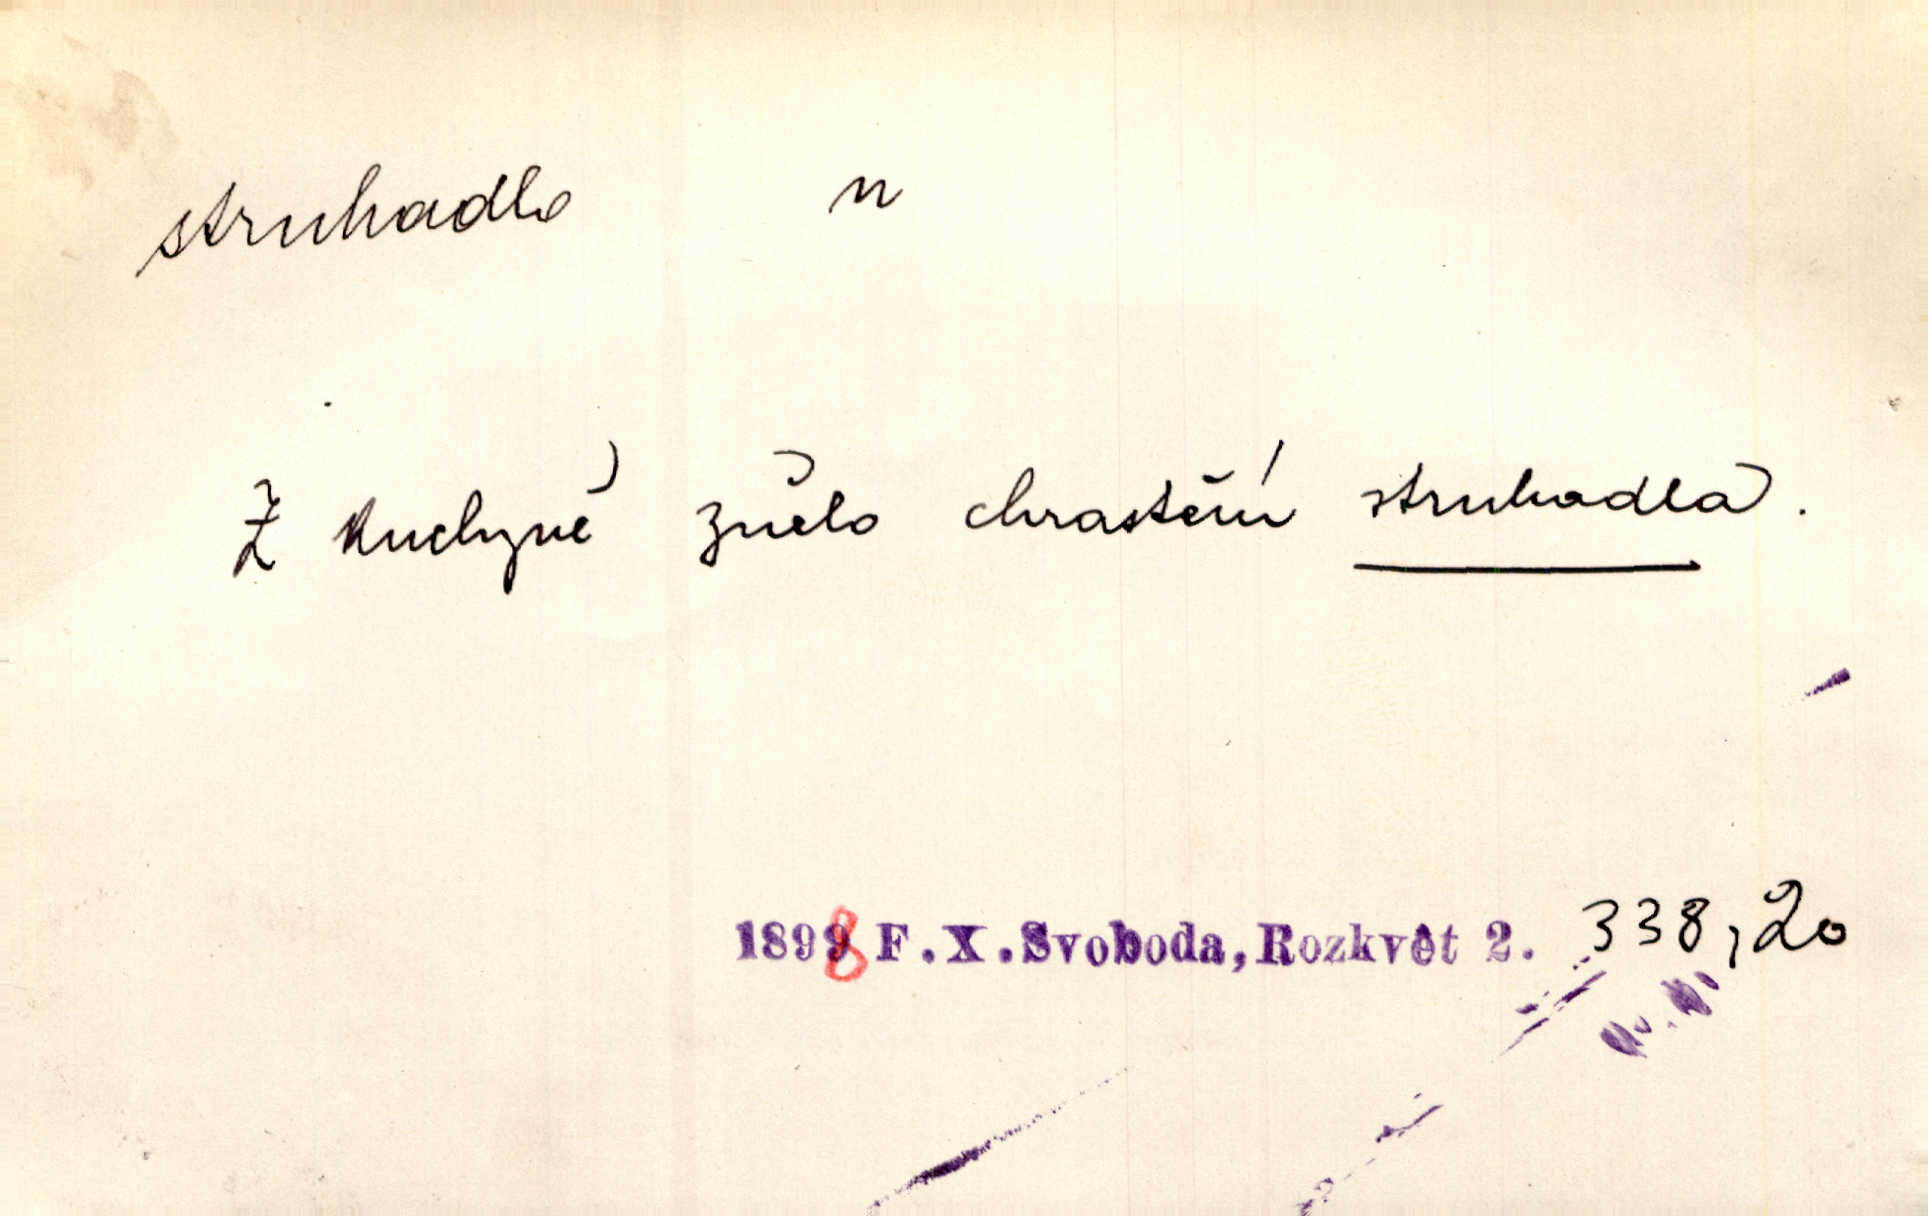 struhadlo n
Z kuchyně znělo chrastění struhadla.
1898 F.X.Svoboda, Rozkvět 2. 338,20